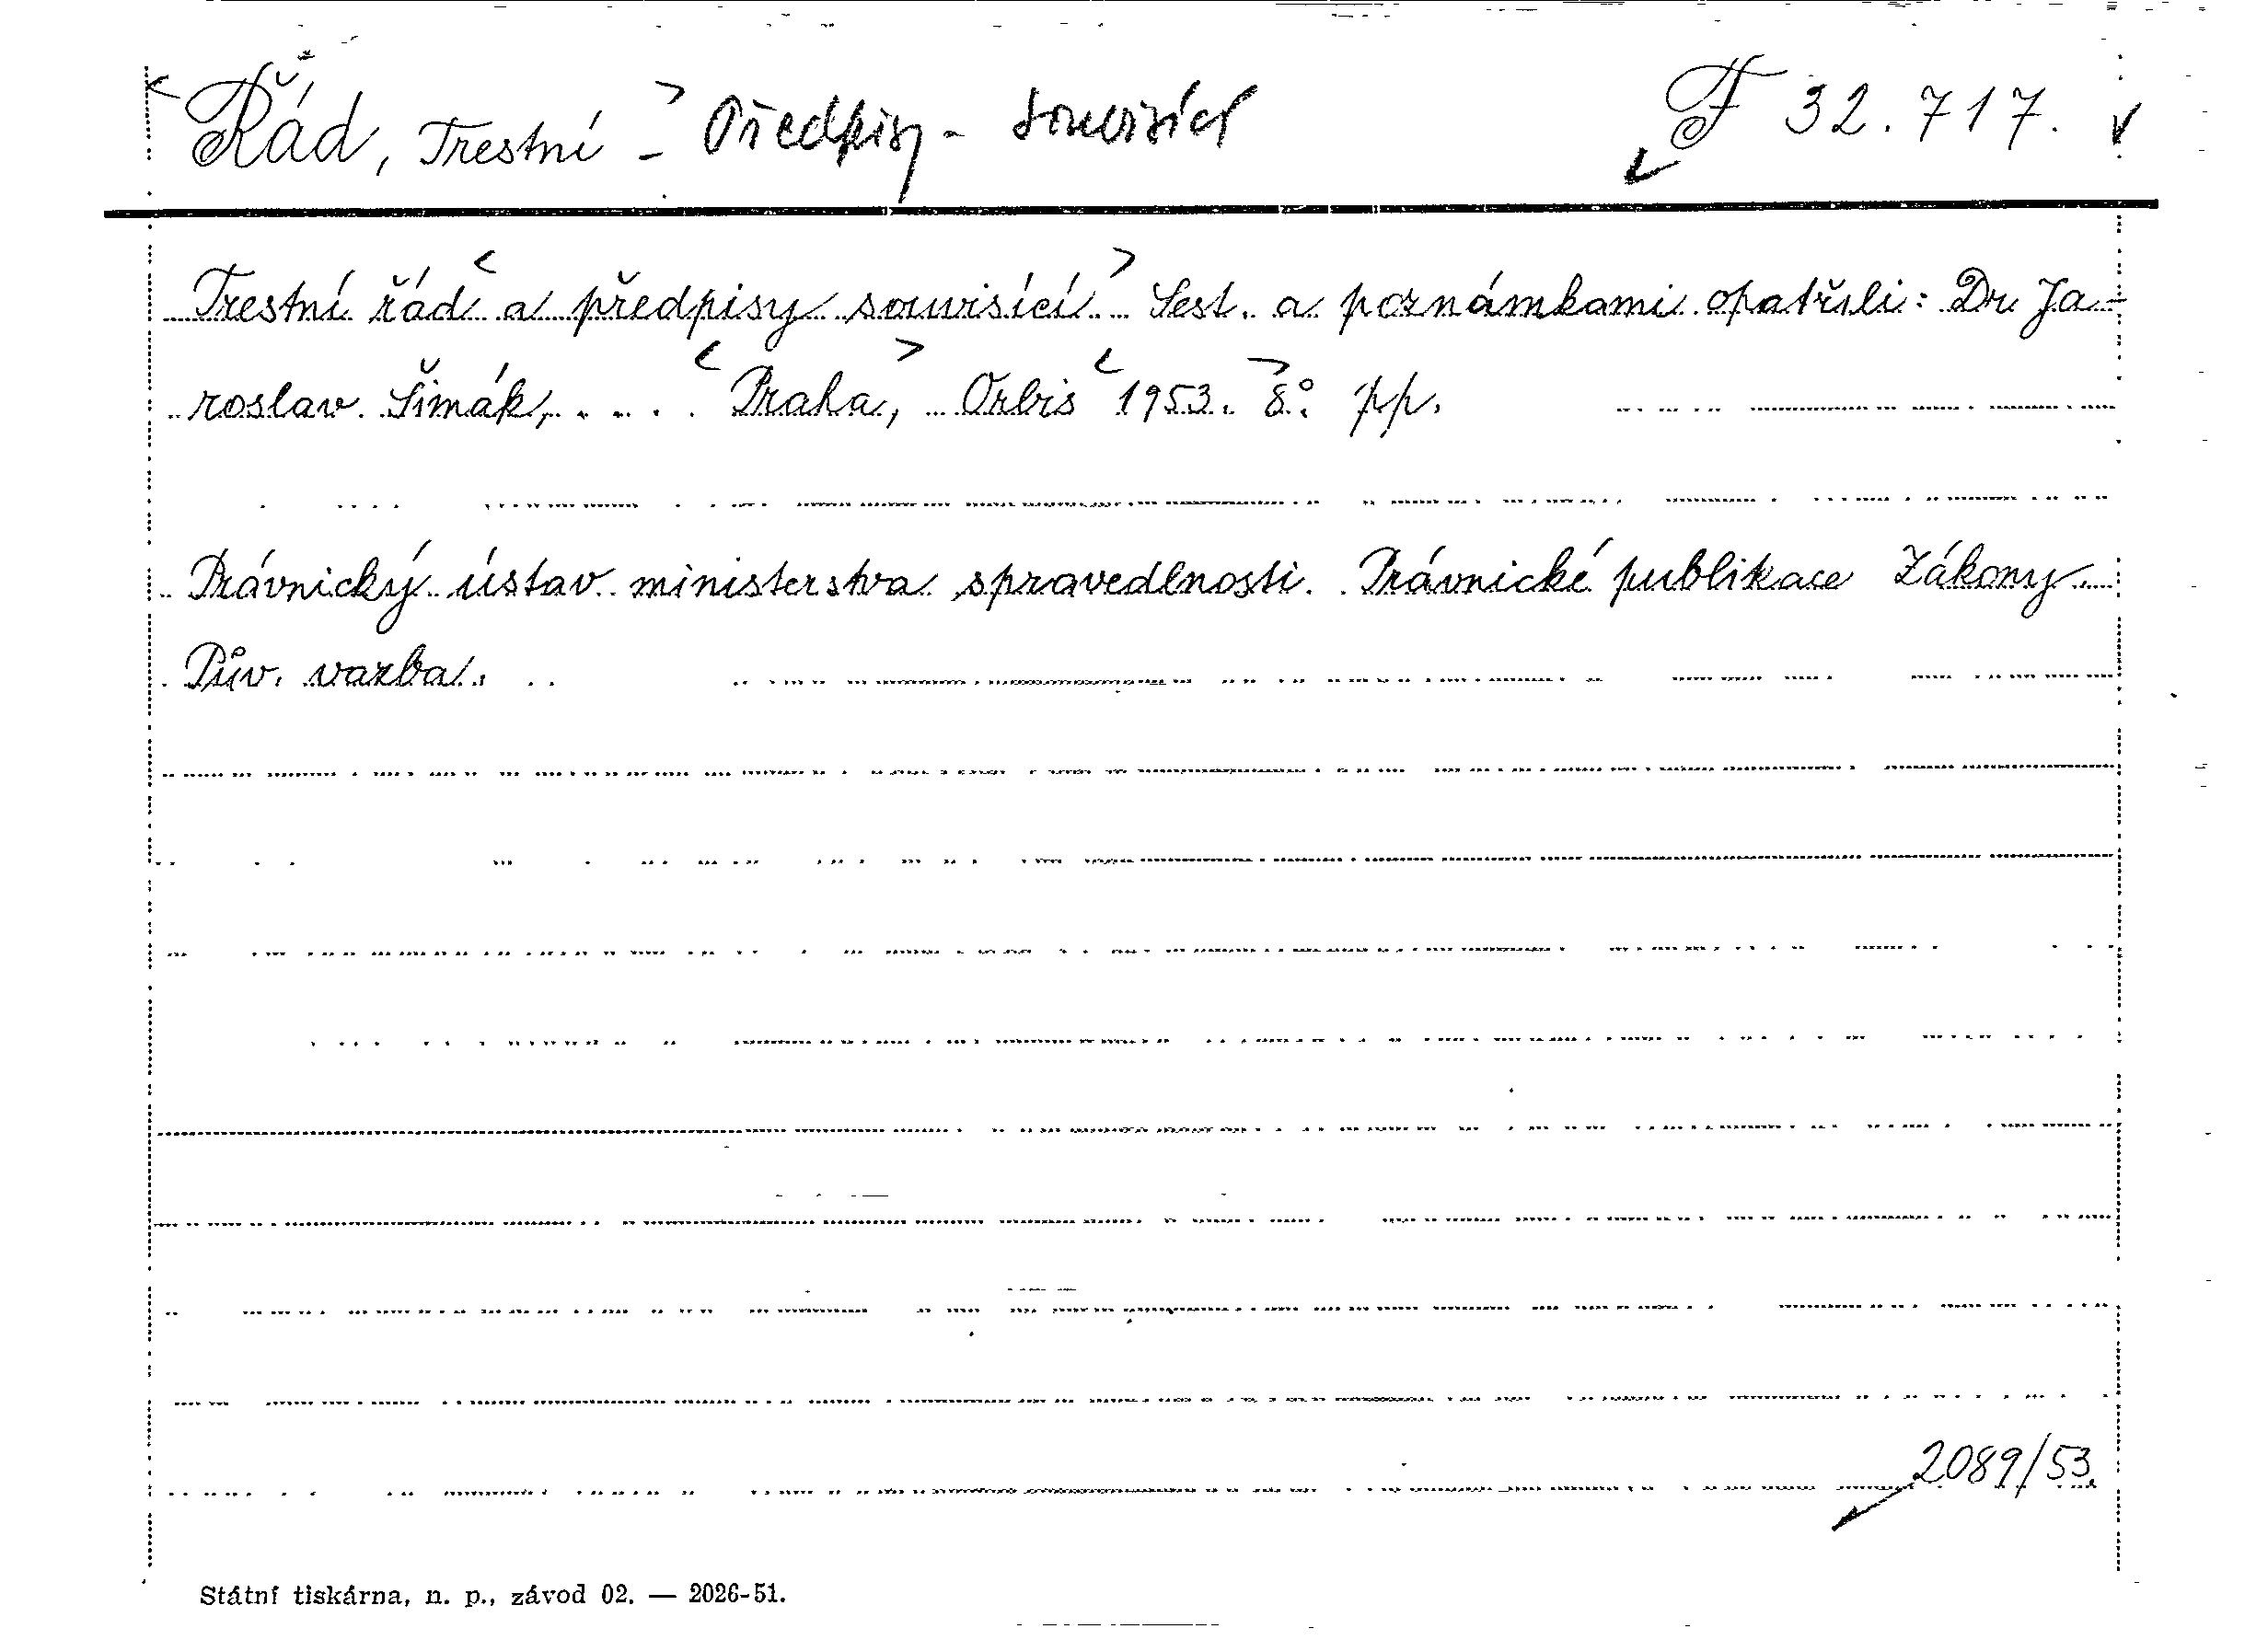 Řád, Trestní - Předpisy - souvisící F 32.717.
Trestní řád a předpisy souvisící. Sest. a poznámkami opatřili: Dr. Ja-
roslav Šimák, .... Praha, Orbis 1953. 8° pp.
Právnický ústav ministerstva spravedlnosti. Právnické publikace Zákony.
Pův. vazba.
2089/53.
Státní tiskárna, n. p., závod 02. — 2026-51.